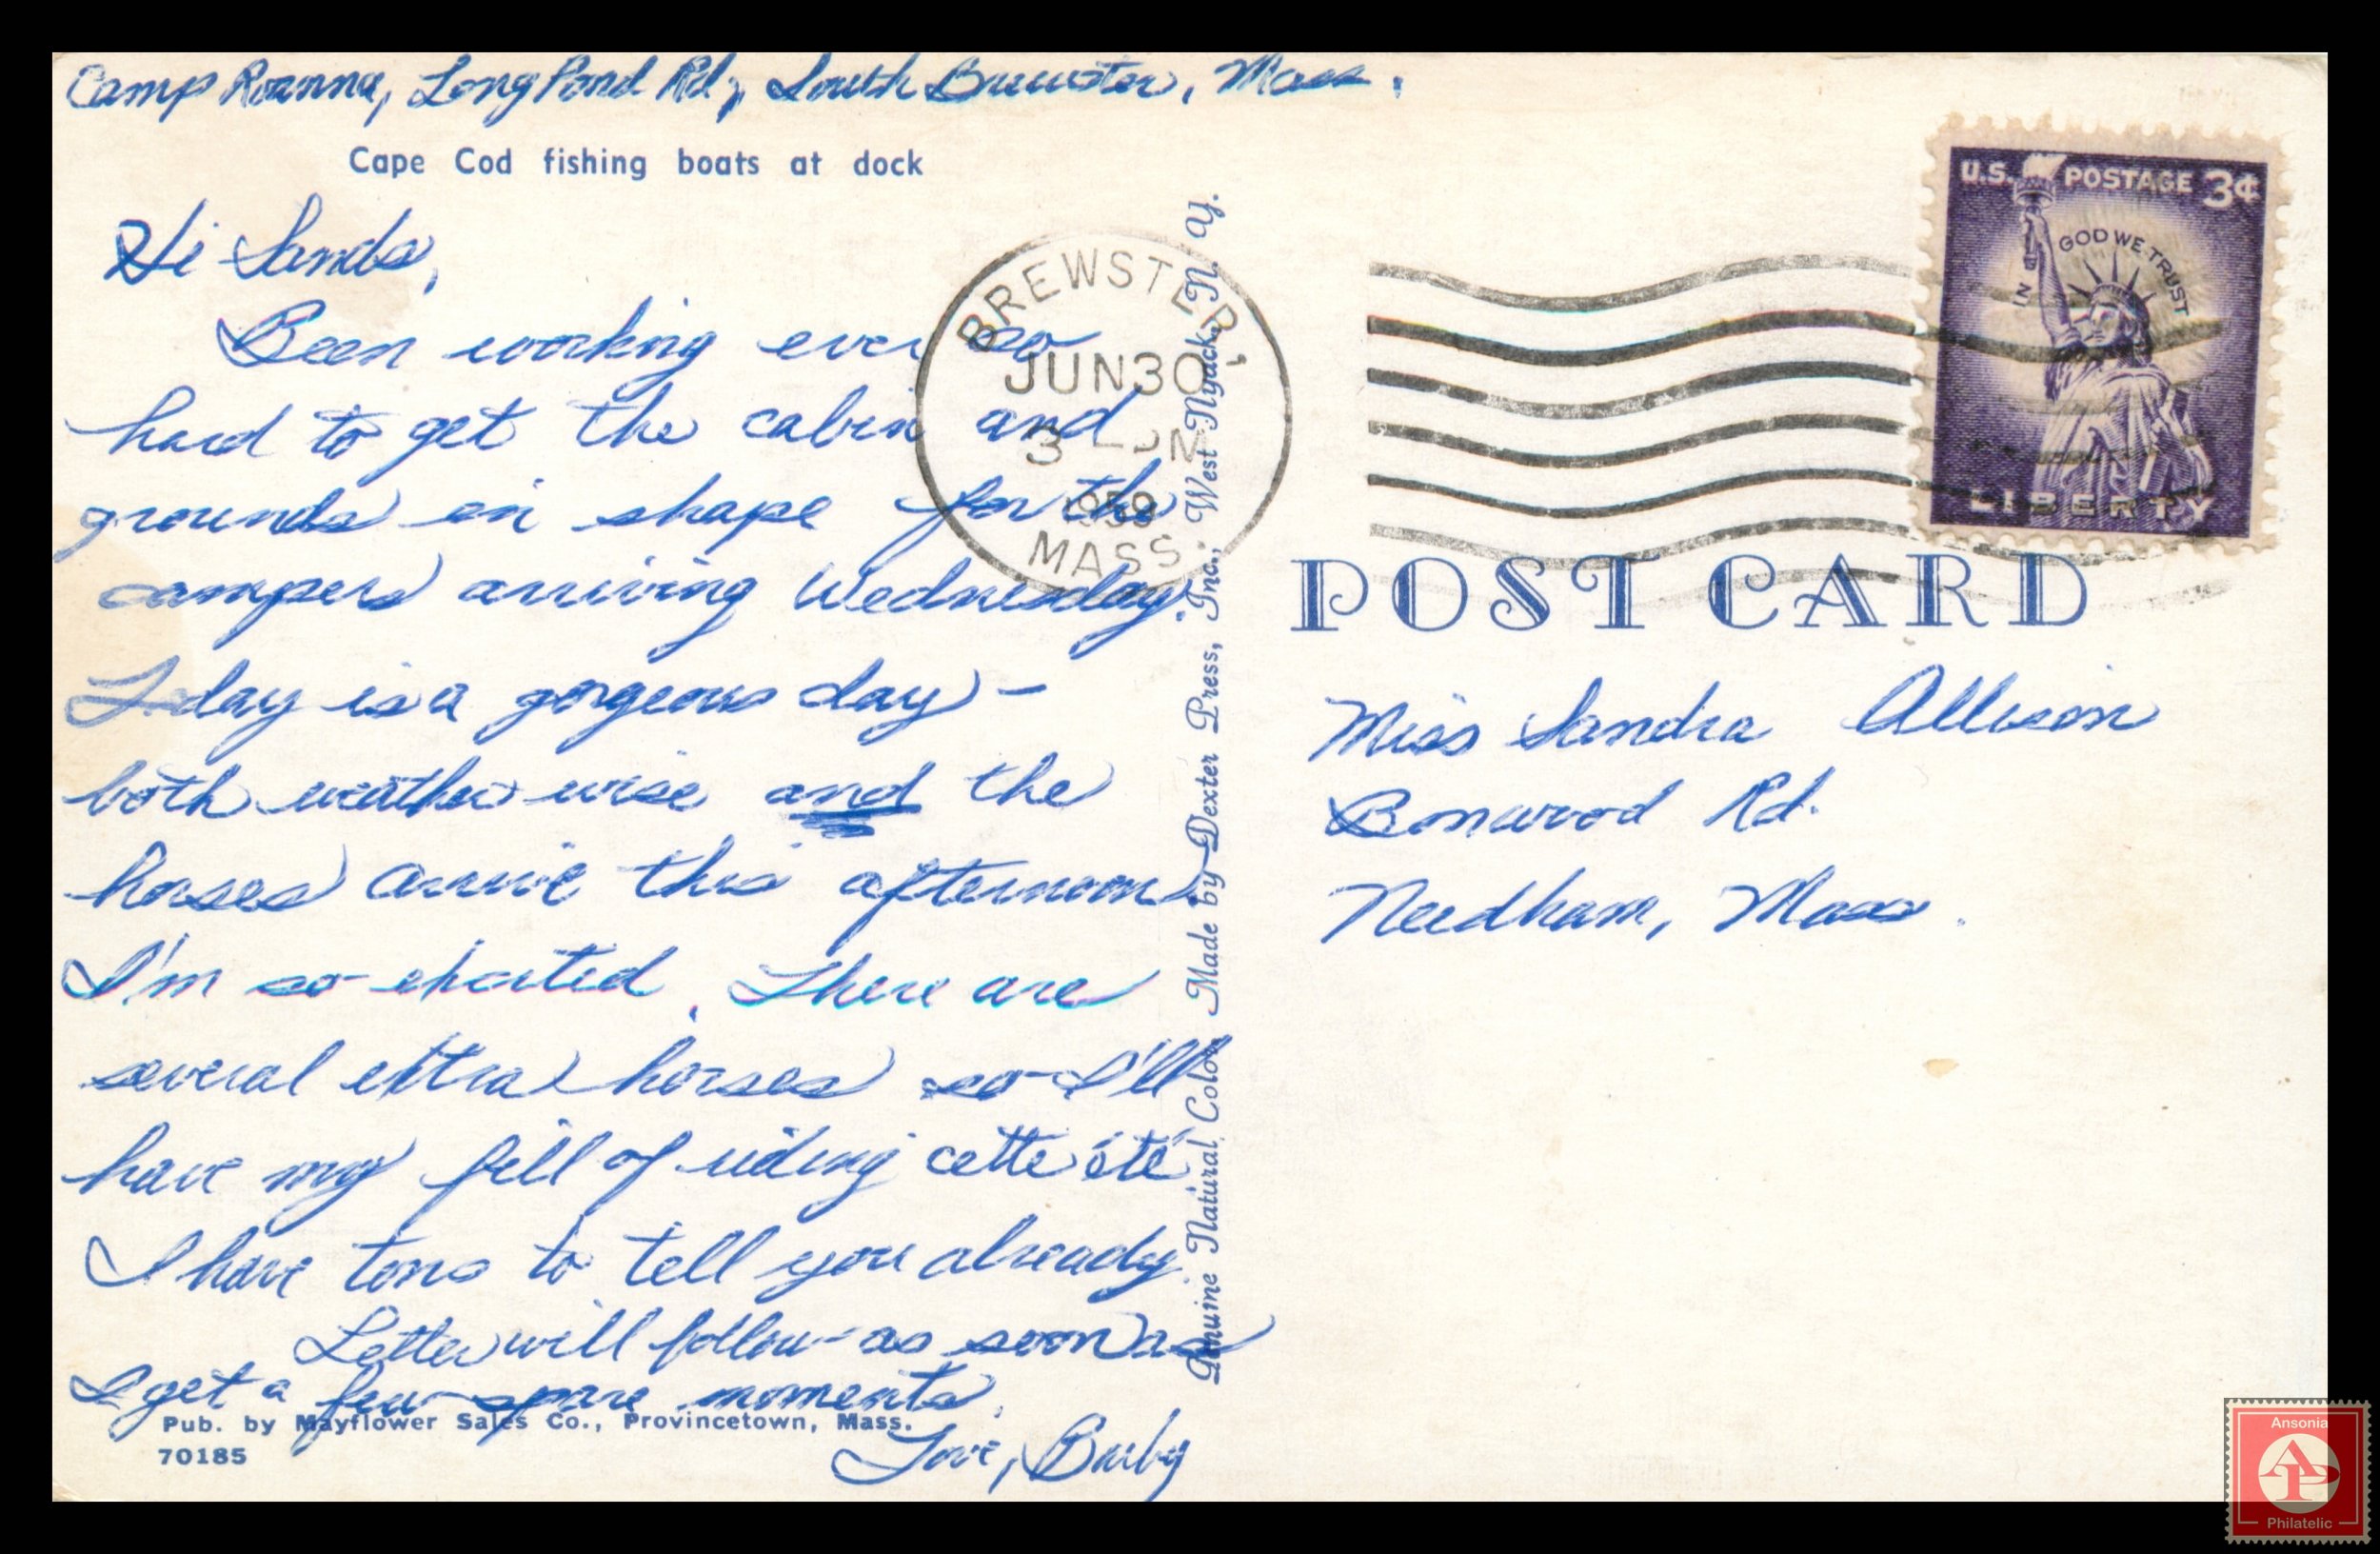 Camp Roanna, Long Pond Rd, South Brewster, Mass.
Cape Cod fishing boats at dock
Hi Sands,
Been working ever so
hard to get the cabin and
grounds in shape for the
campers arriving Wednesday.
Today is a gorgeous day -
both weather wise and the
horses arrive this afternoon.
I'm so excited. There are
several extra horses so I'll
have my fill of riding cette été
I have tons to tell you already.
Letter will follow as soon as
I get a few spare moments.
Love, Barby
Pub. by Mayflower Sales Co., Provincetown, Mass.
70185
BREWSTER,
JUN 30
3 - PM
1959
MASS.
Genuine Natural Color Made by Dexter Press, Inc., West Nyack, N. Y.
U.S. POSTAGE 3¢
IN GOD WE TRUST
LIBERTY
POST CARD
Miss Sandra Allison
Bonwood Rd.
Needham, Mass.
Ansonia
AP
Philatelic